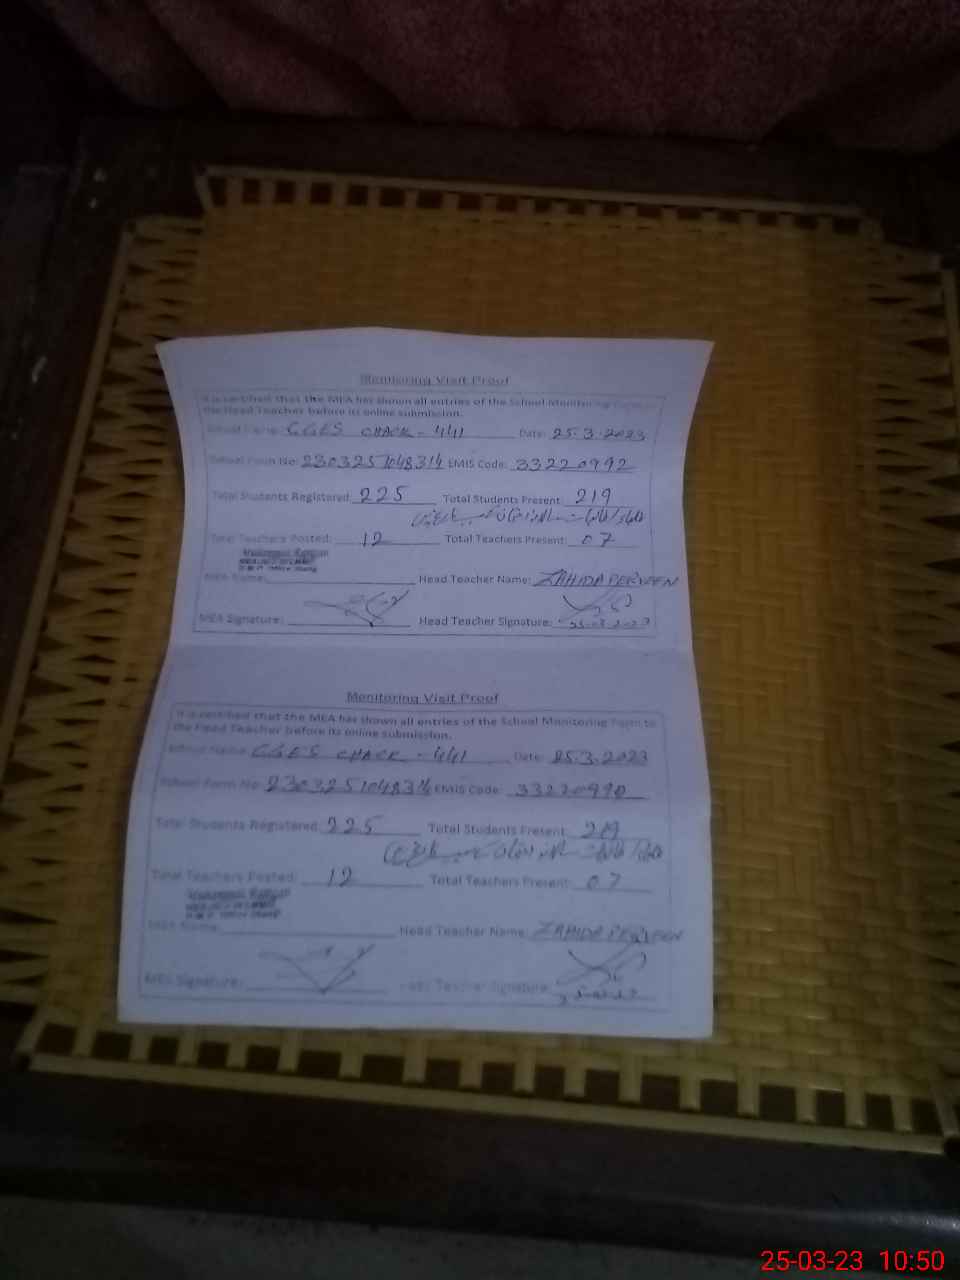 Monitoring Visit Proof
It is certified that the MEA has shown all entries of the School Monitoring Form to
the Head Teacher before its online submission.
School Name: GGES CHACK - 441 Date: 25.3.2023
School Form No: 2303251048314 EMIS Code: 33220992
Total Students Registered: 225 Total Students Present: 219
Total Teachers Posted: 12 Total Teachers Present: 07
MEA Name: Head Teacher Name: ZAHIDA PERVEEN
MEA Signature: Head Teacher Signature:
25-03-2023
Monitoring Visit Proof
It is certified that the MEA has shown all entries of the School Monitoring Form to
the Head Teacher before its online submission.
School Name: GGES CHACK - 441 Date: 25.3.2023
School Form No: 2303251048314 EMIS Code:
Total Students Registered: 225 Total Students Present: 219
Total Teachers Posted: 12 Total Teachers Present: 07
MEA Name: Head Teacher Name: ZAHIDA PERVEEN
MEA Signature: Head Teacher Signature:
25-03-23 10:50